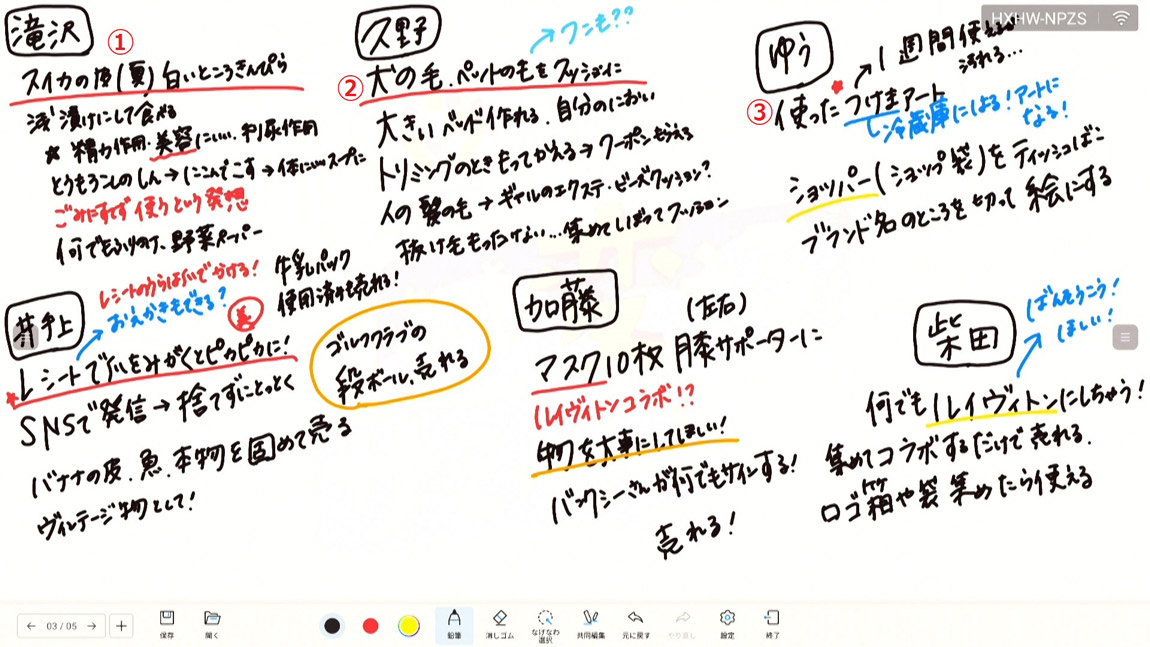 HXHW-NPZS
滝沢
①
スイカの皮(夏)白いところきんぴら
浅漬けにして食べる
精力作用・美容にいい、利尿作用
とうもろこしのしん→にこんでこす→体にいいスープに
ごみにすてず使うという発想
何でもふりかけ、野菜スーパー
久野
→ワンも??
②
犬の毛、ペットの毛をクッションに
大きいベッド作れる、自分のにおい
トリミングのときもってかえる→クーポンもらえる
人の髪の毛→ギャルのエクステ・ビーズクッション?
抜け毛もったいない…集めてしぼってクッション
ゆう
1週間使える
汚れる…
③
使ったつけまアート
冷蔵庫にはる!アートに
なる!
ショッパー(ショップ袋)をティッシュばこ
ブランド名のところを切って絵にする
井上
レシートのうらは
おえかきもできる?
美
牛乳パック
使用済みも売れる!
レシートで爪をみがくとピカピカに!
SNSで発信→捨てずにとっとく
バナナの皮、魚、本物を固めて売る
ヴィンテージ物として!
ゴルフクラブの
段ボール、売れる
加藤
(左右)
マスク10枚 膝サポーターに
ルイヴィトンコラボ!?
物を大事にしてほしい!
バンクシーさんが何でもサインする!
売れる!
柴田
ばんそうこう!
ほしい!
何でもルイヴィトンにしちゃう!
集めてコラボするだけで売れる.
ロゴ箱や袋 集めたら使える
03 / 05
保存
開く
鉛筆
消しゴム
なげなわ
選択
共同編集
元に戻す
やり直し
設定
終了